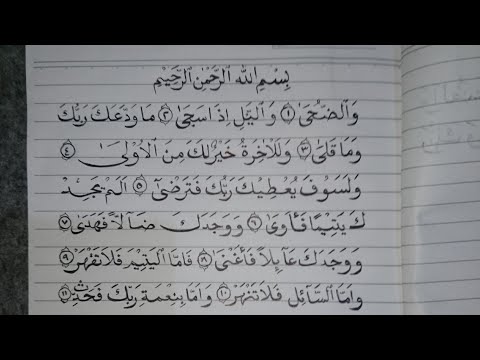 بِسْمِ اللهِ الرَّحْمٰنِ الرَّحِيْمِ
وَالضُّحٰى ١ وَالَّيْلِ اِذَا سَجٰى ٢ مَا وَدَّعَكَ رَبُّكَ
وَمَا قَلٰى ٣ وَلَلْاٰخِرَةُ خَيْرٌ لَّكَ مِنَ الْاُوْلٰى ٤
وَلَسَوْفَ يُعْطِيْكَ رَبُّكَ فَتَرْضٰى ٥ اَلَمْ يَجِدْ
كَ يَتِيْمًا فَاٰوٰى ٦ وَوَجَدَكَ ضَآلًّا فَهَدٰى ٧
وَوَجَدَكَ عَآئِلًا فَاَغْنٰى ٨ فَاَمَّا الْيَتِيْمَ فَلَا تَقْهَرْ ٩
وَاَمَّا السَّآئِلَ فَلَا تَنْهَرْ ١٠ وَاَمَّا بِنِعْمَةِ رَبِّكَ فَحَدِّثْ ١١